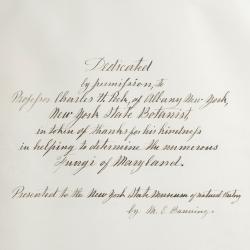 Dedicated
by permission, to
Professor Charles H. Peck, of Albany New York,
New York State Botanist,
in token of thanks for his kindness
in helping to determine the numerous
Fungi of Maryland.
Presented to the New York State Museum of natural History
by M. E. Banning.